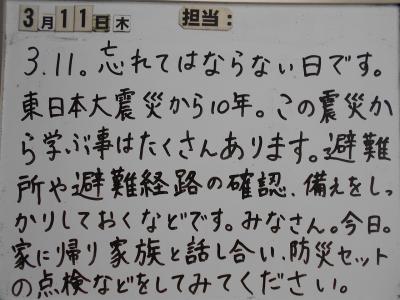 3月11日木 担当：
3.11。忘れてはならない日です。
東日本大震災から10年。この震災か
ら学ぶ事はたくさんあります。避難
所や避難経路の確認、備えをしっ
かりしておくなどです。みなさん。今日。
家に帰り家族と話し合い、防災セット
の点検などをしてみてください。